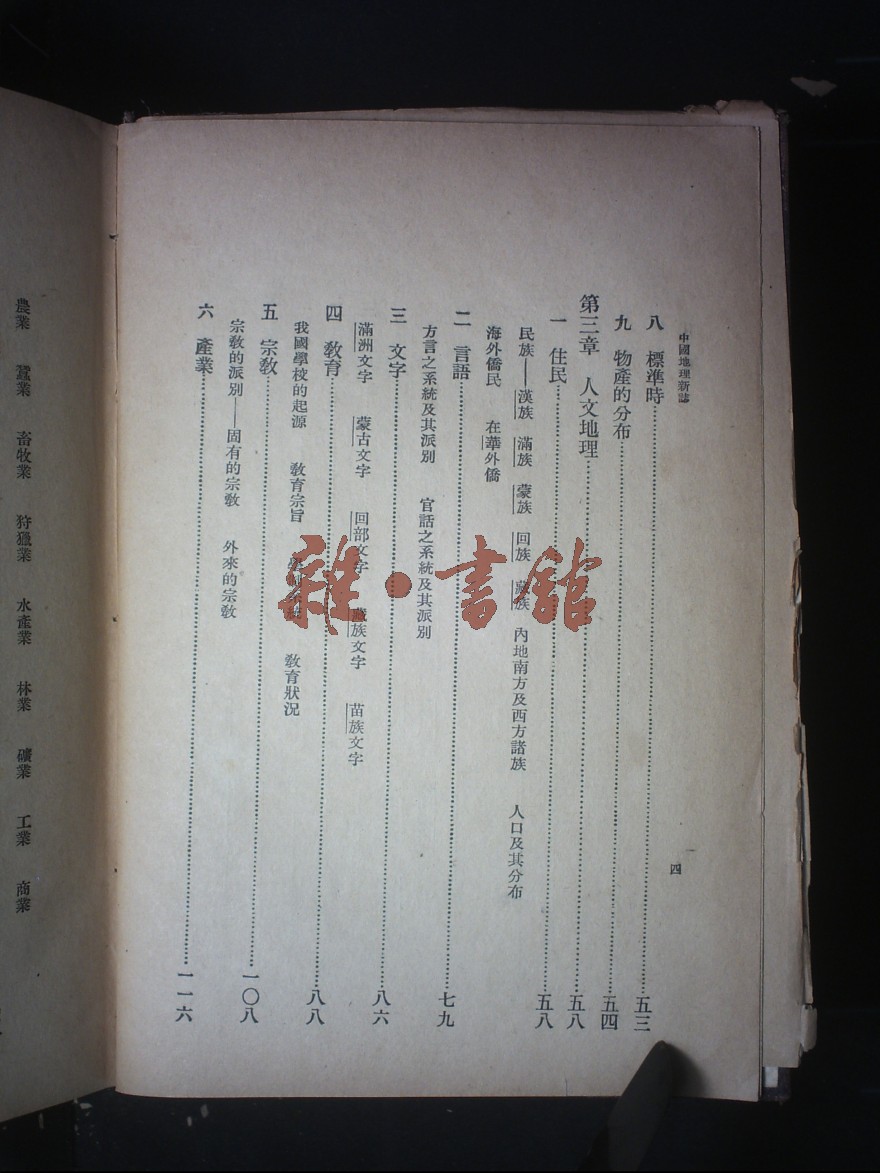 中國地理新誌
四
八 標準時……五三
九 物產的分布……五四
第三章 人文地理……五八
一 住民……五八
民族——漢族 滿族 蒙族 回族 藏族 內地南方及西方諸族 人口及其分布
海外僑民 在華外僑
二 言語……七九
方言之系統及其派別 官話之系統及其派別
三 文字……八六
滿洲文字 蒙古文字 回部文字 藏族文字 苗族文字
四 教育……八八
我國學校的起源 教育宗旨 學制系統 教育狀況
五 宗教……一〇八
宗教的派別——固有的宗教 外來的宗教
六 產業……一一六
農業 蠶業 畜牧業 狩獵業 水產業 林業 礦業 工業 商業
雜·書館